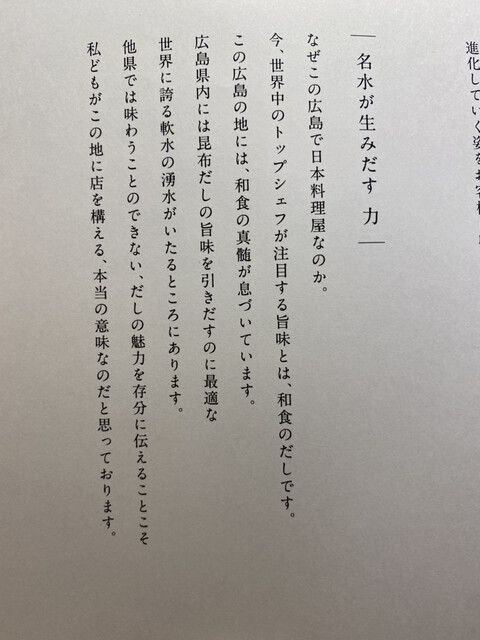 進化していく姿をお客様
― 名水が生みだす 力 ―
なぜこの広島で日本料理屋なのか。
今、世界中のトップシェフが注目する旨味とは、和食のだしです。
この広島の地には、和食の真髄が息づいています。
広島県内には昆布だしの旨味を引きだすのに最適な
世界に誇る軟水の湧水がいたるところにあります。
他県では味わうことのできない、だしの魅力を存分に伝えることこそ
私どもがこの地に店を構える、本当の意味なのだと思っております。